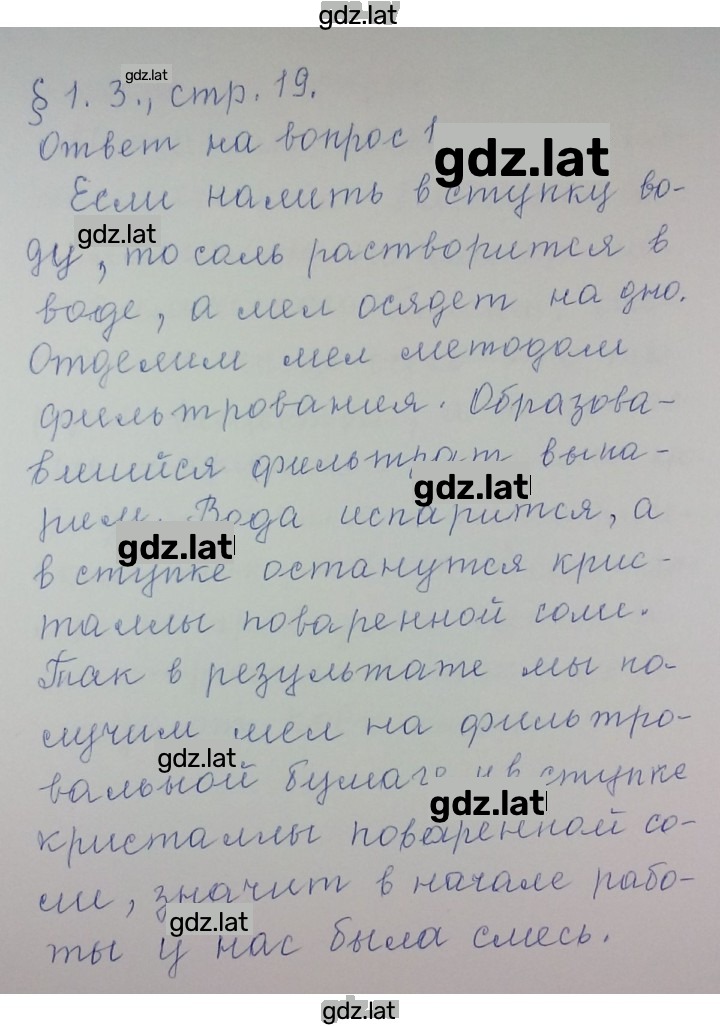 gdz.lat
§ 1. 3., стр. 19.
gdz.lat
Ответ на вопрос 1
gdz.lat
Если налить в ступку во-
gdz.lat
ду, то соль растворится в
воде, а мел осядет на дно.
Отделим мел методом
фильтрования. Образова-
вшийся фильтрат выпа-
gdz.lat
рим. Вода испарится, а
gdz.lat
в ступке останутся крис-
таллы поваренной соли.
Так в результате мы по-
лучим мел на фильтро-
gdz.lat
вальной бумаге и в ступке
gdz.lat
кристаллы поваренной со-
ли, значит в начале рабо-
gdz.lat
ты у нас была смесь.
gdz.lat